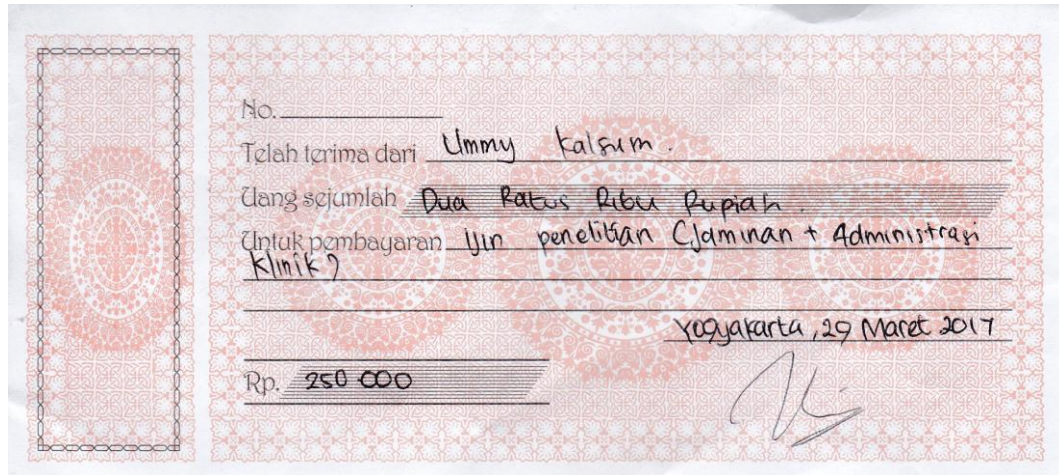 No.
Telah terima dari Ummy Kalsum.
Uang sejumlah Dua Ratus Ribu Rupiah.
Untuk pembayaran Ijin penelitian (Jaminan + Administrasi
Klinik)
Yogyakarta, 29 Maret 2017
Rp. 250 000